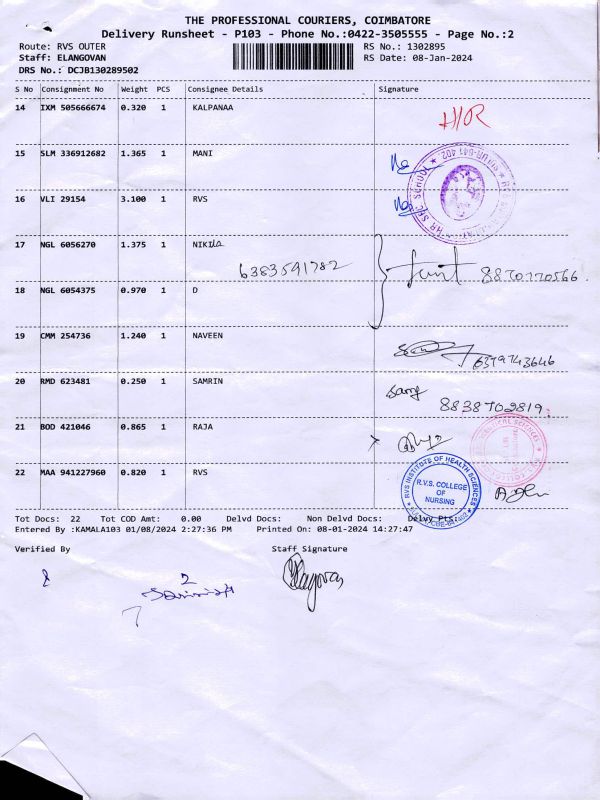 THE PROFESSIONAL COURIERS, COIMBATORE
Delivery Runsheet - P103 - Phone No.:0422-3505555 - Page No.:2
Route: RVS OUTER RS No.: 1302895
Staff: ELANGOVAN RS Date: 08-Jan-2024
DRS No.: DCJB130289502
S No Consignment No Weight PCS Consignee Details Signature
14 IXM 505666674 0.320 1 KALPANAA
H/R
15 SLM 336912682 1.365 1 MANI
16 VLI 29154 3.100 1 RVS
17 NGL 6056270 1.375 1 NIKILa
6383591782
8870770566.
18 NGL 6054375 0.970 1 D
19 CMM 254736 1.240 1 NAVEEN
6379743646
20 RMD 623481 0.250 1 SAMRIN
8838702819.
21 BOD 421046 0.865 1 RAJA
22 MAA 941227960 0.820 1 RVS
RVS INSTITUTE OF HEALTH SCIENCES
R.V.S. COLLEGE
OF
NURSING
Tot Docs: 22 Tot COD Amt: 0.00 Delvd Docs: Non Delvd Docs: Delvy Pts:
Entered By :KAMALA103 01/08/2024 2:27:36 PM Printed On: 08-01-2024 14:27:47
Verified By Staff Signature
2
Elangovan